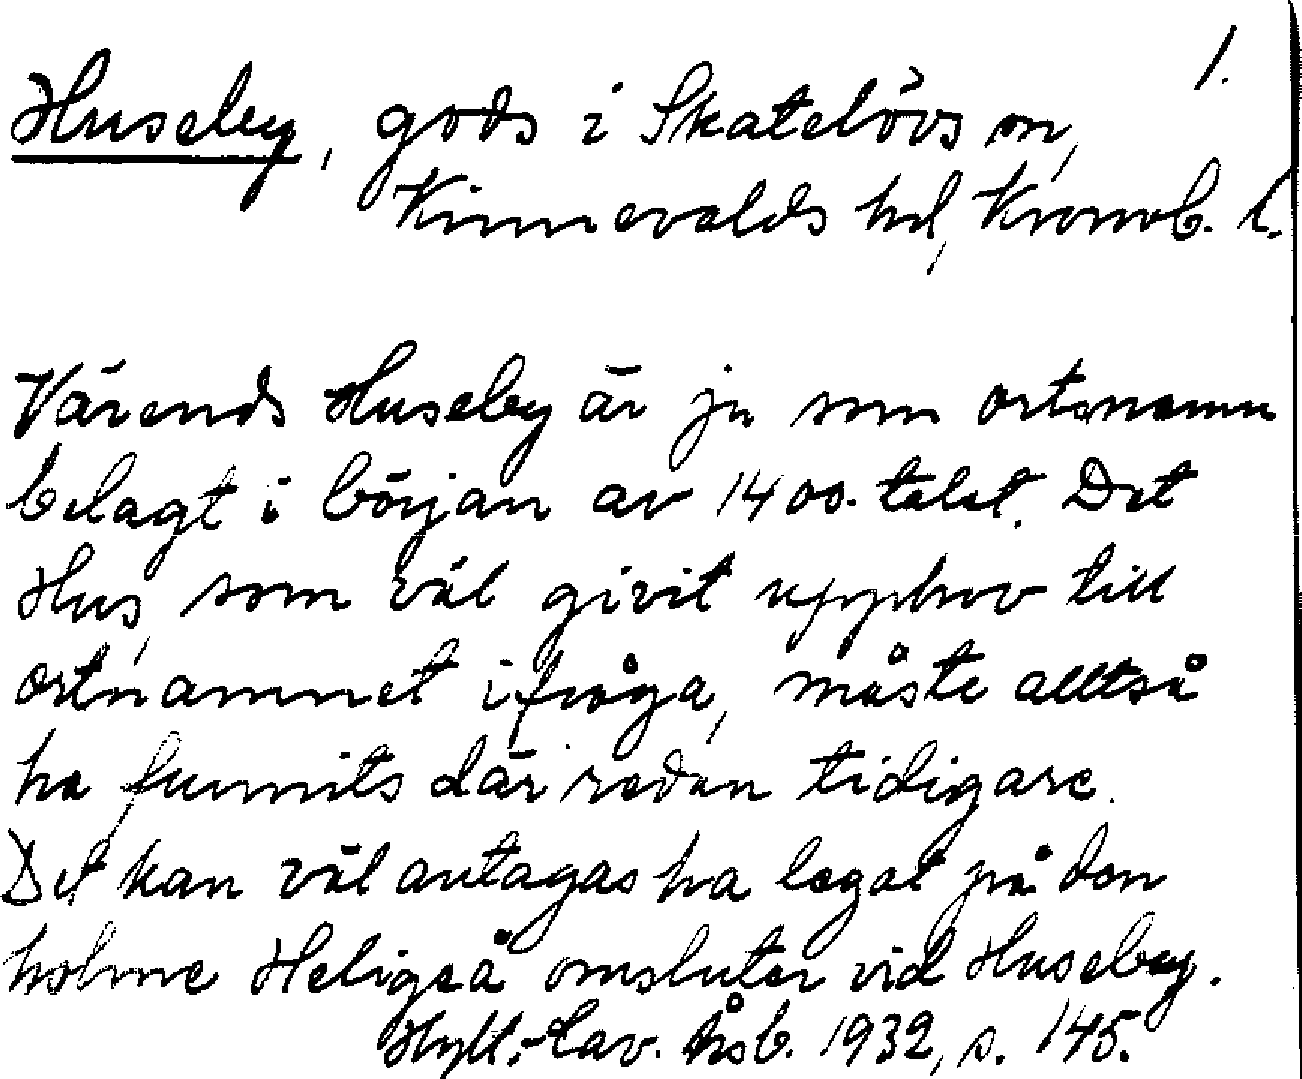 1.
Huseby, gods i Skatelövs sn,
Kinnevalds hd, Kronob. l.
Värends Huseby är ju som ortsnamn
belagt i början av 1400-talet. Det
Hus, som väl givit upphov till
ortnamnet ifråga, måste alltså
ha funnits där redan tidigare.
Det kan väl antagas ha legat på den
holme Heligeå omsluter vid Huseby.
Hylt.-Cav. åsb. 1932, s. 145.